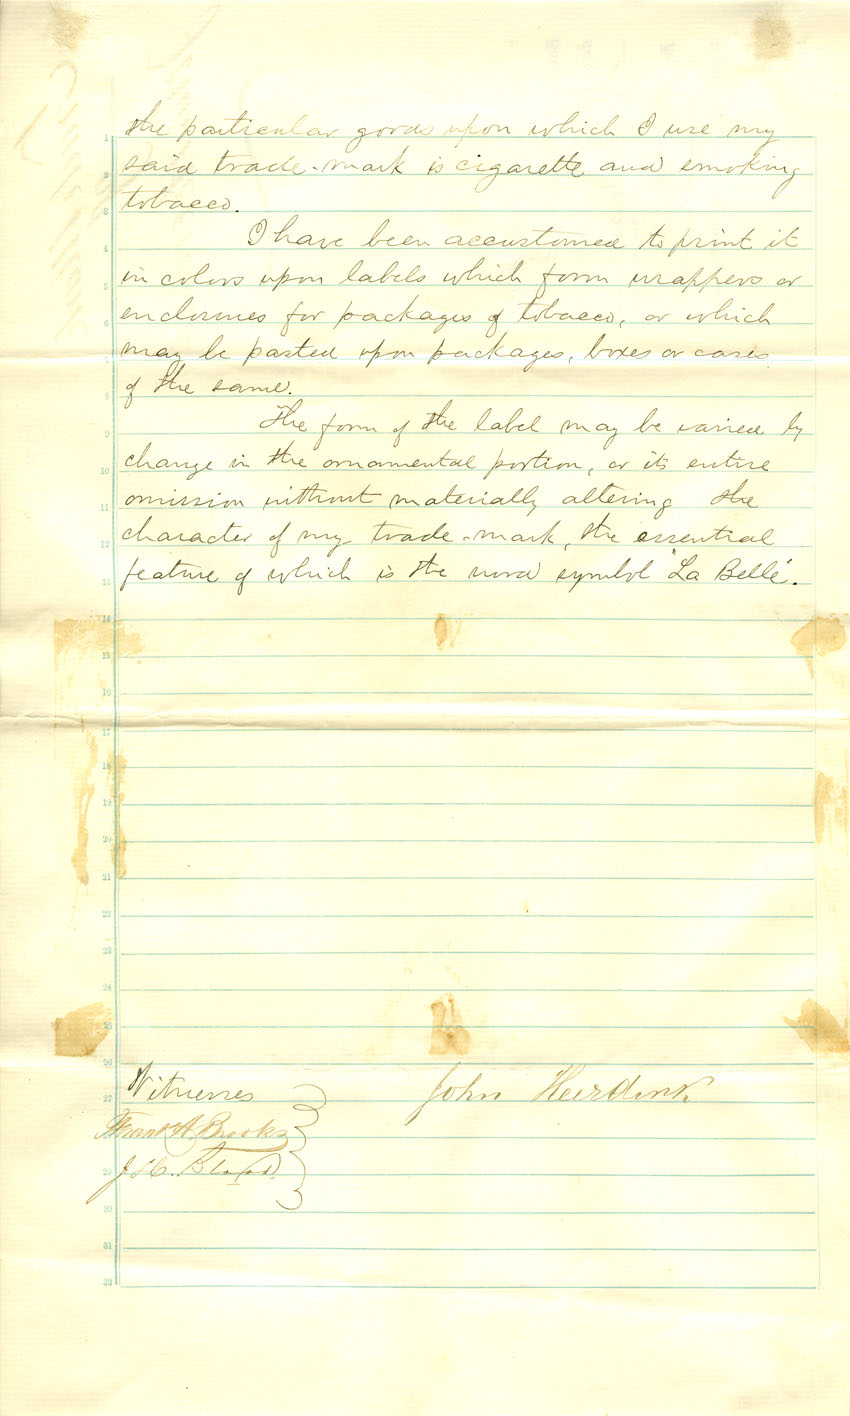 the particular goods upon which I use my
said trade-mark is cigarette and smoking
tobacco.
I have been accustomed to print it
in colors upon labels which form wrappers or
enclosures for packages of tobacco, or which
may be pasted upon packages, boxes or cases
of the same.
The form of the label may be varied by
change in the ornamental portion, or its entire
omission without materially altering the
character of my trade-mark, the essential
feature of which is the word symbol "La Belle".
1
2
3
4
5
6
7
8
9
10
11
12
13
14
15
16
17
18
19
20
21
22
23
24
25
26
27
29
30
31
32
Witnesses
John Heerdink
Frank A. Brooks